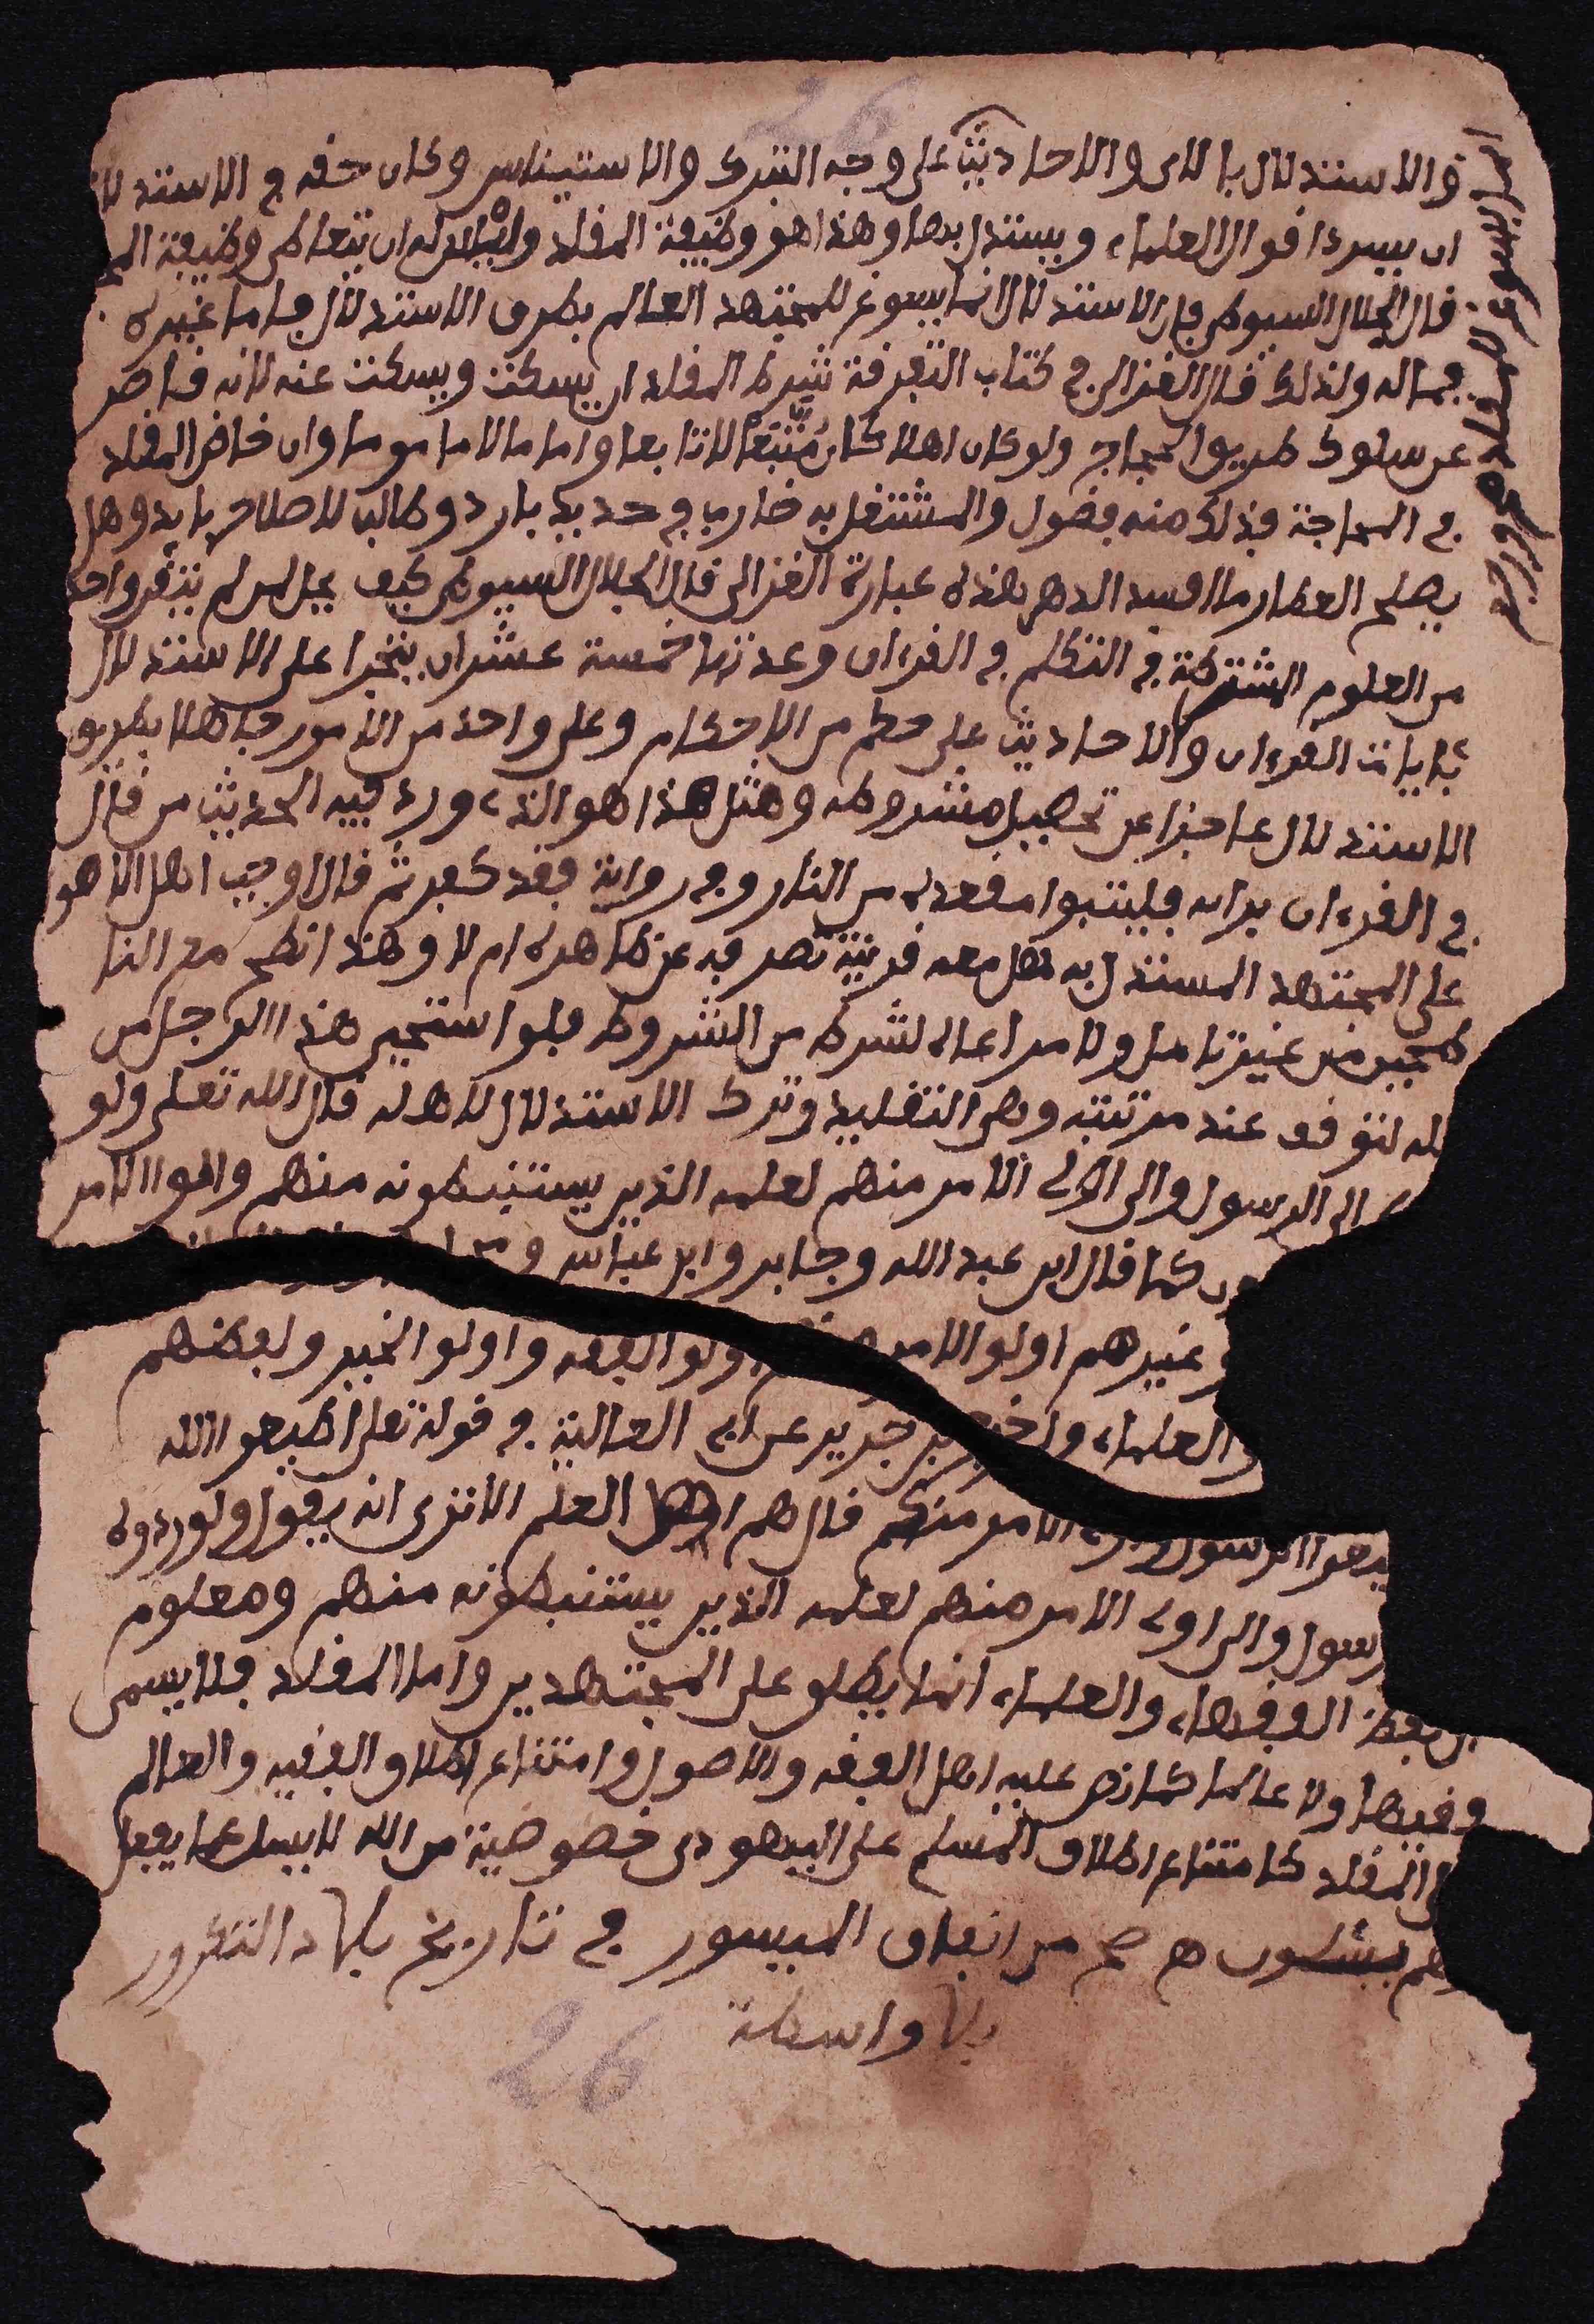 و الاستدلال بالاى والاحاديث على وجه التبرك والاستيناس وكان حقه في الاستدلا
ان يسرد اقوال العلماء ويستدل بها وهذا هو وظيفة المقلد وليس له ان يتعاطى وظيفة المج
قال الجلال السيوطي فان الاستدلال انما يسوغ للمجتهد العالم بطرق الاستدلال فاما غيره
فما له ولذلك قال الغزالي في كتاب التفرقة شرط المقلد ان يسكت ويسكت عنه لانه قاصر
عن سلوك طريق الحجاج ولو كان اهلا كان متبعا لا تابعا واماما لا ماموما وان خاض المقلد
في المحاجة فذلك منه فضول والمشتغل به ضارب في حديد بارد وطالب لاصلاح فاسد وهل
يصلح العطار ما افسد الدهر هذه عبارة الغزالي قال الجلال السيوطي كيف يحل لمن لم يتقن واحد
من العلوم المشترطة في التكلم في القرءان وعدتها خمسة عشر ان يتجرا على الاستدلال
بئايات القرءان والاحاديث على حكم من الاحكام وعلى واحد من الامور جاهلا بطريق
الاستدلال عاجزا عن تحصيل شروطه ومثل هذا هو الذي ورد فيه الحديث من قال
في القرءان برايه فليتبوا مقعده من النار وفي رواية فقد كفر ثم قال اوجب اهل الاصو
على المجتهد المستدل به هل معه قرينة تصرفه عن ظاهره ام لا وهذا انطح مع النا
طحين من غير تامل ولا مراعاة لشرط من الشروط فلو استحيى هذا الرجل من
لله لتوقف عند مرتبته وهي التقليد وترك الاستدلال لاهله قال الله تعلى ولو
الى الرسول والى اولي الامر منهم لعلمه الذين يستنبطونه منهم واولوا الامر
كما قال ابن عبد الله وجابر وابن عباس
وغيرهم اولو الامر هم اولو الفقه واولو الخير وبعضهم
والعلماء واخرج ابن جرير عن ابي العالية في قوله تعلى اطيعوا الله
يعوا الرسول واولي الامر منكم قال هم اهل العلم الا ترى انه يقول ولو ردوه
رسول والى اولي الامر منهم لعلمه الذين يستنبطونه منهم ومعلوم
ان لفظ الفقهاء والعلماء انما يطلق على المجتهدين واما المقلد فلا يسمى
فقيها ولا عالما كما نص عليه اهل الفقه والاصول وامتناع اطلاق الفقيه والعالم
على المقلد كامتناع اطلاق المسلم على اليهودي خصوصية من الله لا يسل عما يفعل
هم يسئلون هـ صح من انفاق الميسور في تاريخ بلاد التكرور
بلا واسطة
26
26